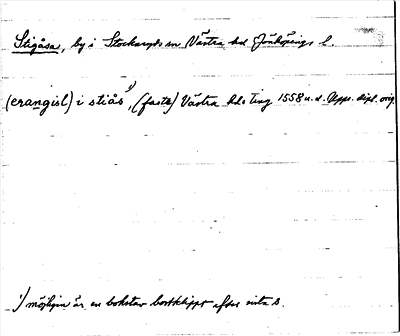 Stigåsa, by i Stockaryds sn Västra hd Jönköpings l.
(erangisl) i stiås 1), (faste) Västra hds ting 1558 u.d. Upps. dipl. orig.
1) möjligen är en bokstav bortklippt efter sista s.